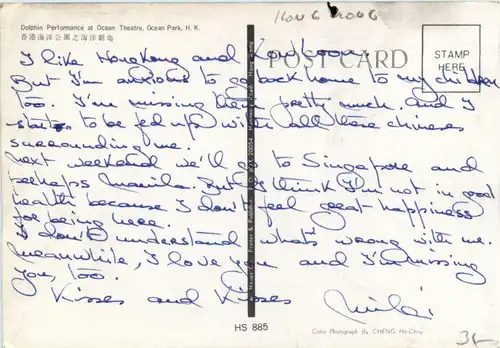 Dolphin Performance at Ocean Theatre, Ocean Park, H. K.
香港海洋公園之海洋劇場
HONG KONG
POST CARD
STAMP
HERE
I like HongKong and Kowloon.
But I'm anxious to go back home to my children
too. I'm missing them pretty much. and I
start to be fed up with all these chineses
surrounding me.
Next weekend we'll go to Singapore and
perhaps Manila. But I think I'm not in good
health because I don't feel great-happiness
for being here.
I don't understand what's wrong with me.
Meanwhile, I love you and I'm missing
you, too.
Kisses and Kisses
HS 885
Color Photograph By CHENG Ho-Choy